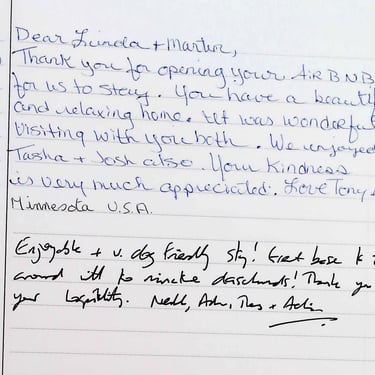 Dear Linda + Martin,
Thank you for opening your AIRBNB
for us to stay. You have a beautif
and relaxing home. It was wonderful
visiting with you both. We enjoyed
Tasha + Josh also. Your Kindness
is very much appreciated. Love Tony
Minnesota U.S.A.
Enjoyable + v. dog friendly stay! Great base to
around with to miniature daschunds! Thank you
your hospitality.